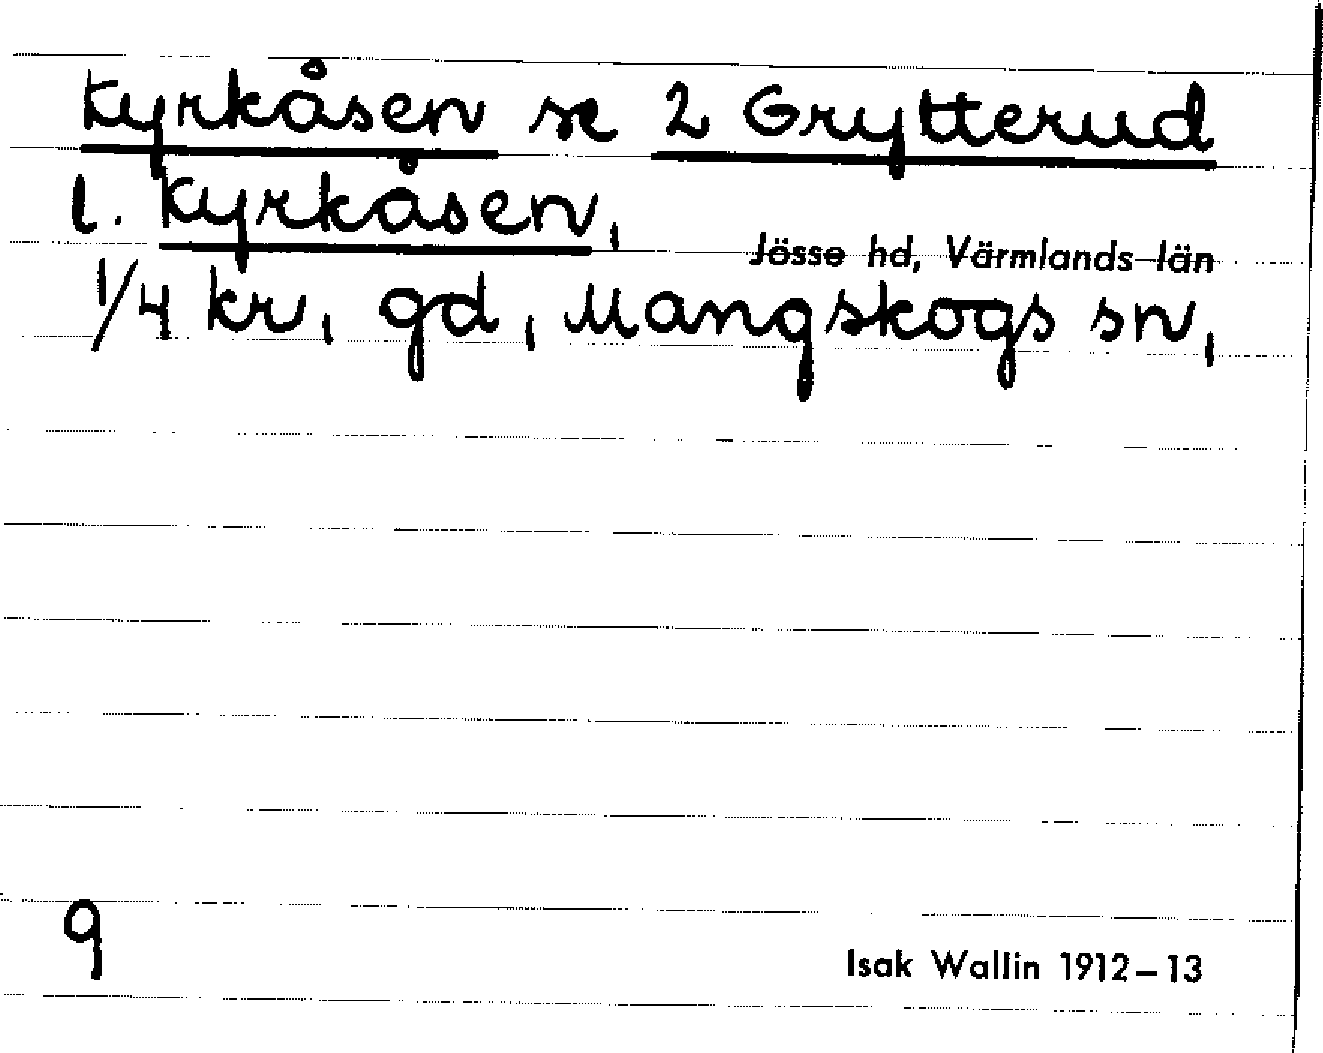 Kyrkåsen se 2 Grytterud
l. Kyrkåsen,
Jösse hd, Värmlands län
1/4 kr, gd, Mangskogs sn,
9
Isak Wallin 1912–13